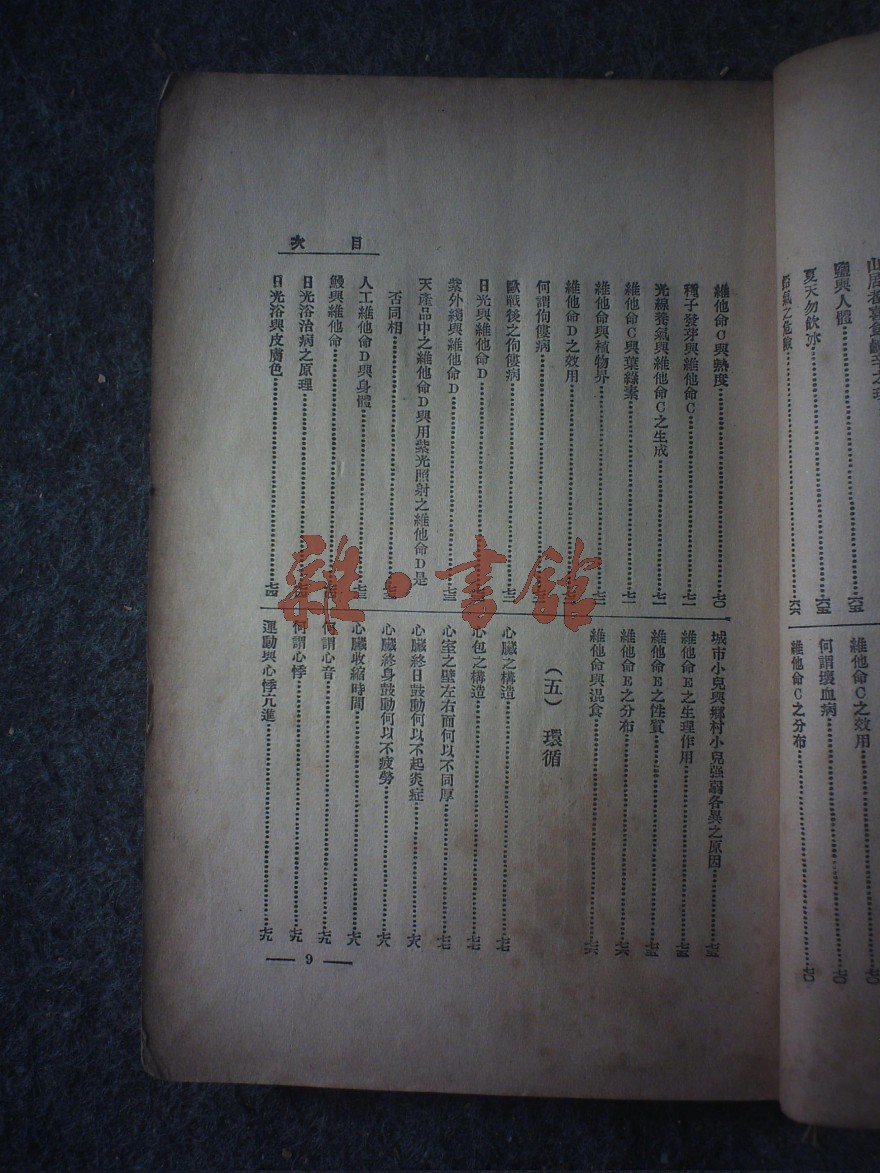 鹽與人體……六五
夏天勿飲冰……六五
之危險……六六
維他命C之效用……七〇
何謂壞血病……七〇
維他命C之分布……七〇
目 次
維他命C與熱度……七〇
種子發芽與維他命C……七一
光線養氣與維他命C之生成……七一
維他命C與葉綠素……七一
維他命與植物界……七二
維他命D之效用
何謂佝僂病
歐戰後之佝僂病……七二
日光與維他命D
紫外線與維他命D……七三
天產品中之維他命D與用紫光照射之維他命D是
否同相……七三
人工維他命D與身體……七三
鰻與維他命
日光浴治病之原理
日光浴與皮膚色……七四
城市小兒與鄉村小兒強弱各異之原因……七五
維他命E之生理作用……七五
維他命E之性質……七五
維他命E之分布……七六
維他命與混食……七六
(五) 環循
心臟之構造……七七
心包之構造……七七
心室之壁左右面何以不同厚……七七
心臟終日鼓動何以不起炎症……七八
心臟終身鼓動何以不疲勞……七八
心臟收縮時間……七八
何謂心音……七九
何謂心悸……七九
運動與心悸亢進……七九
— 9 —
雜·書館